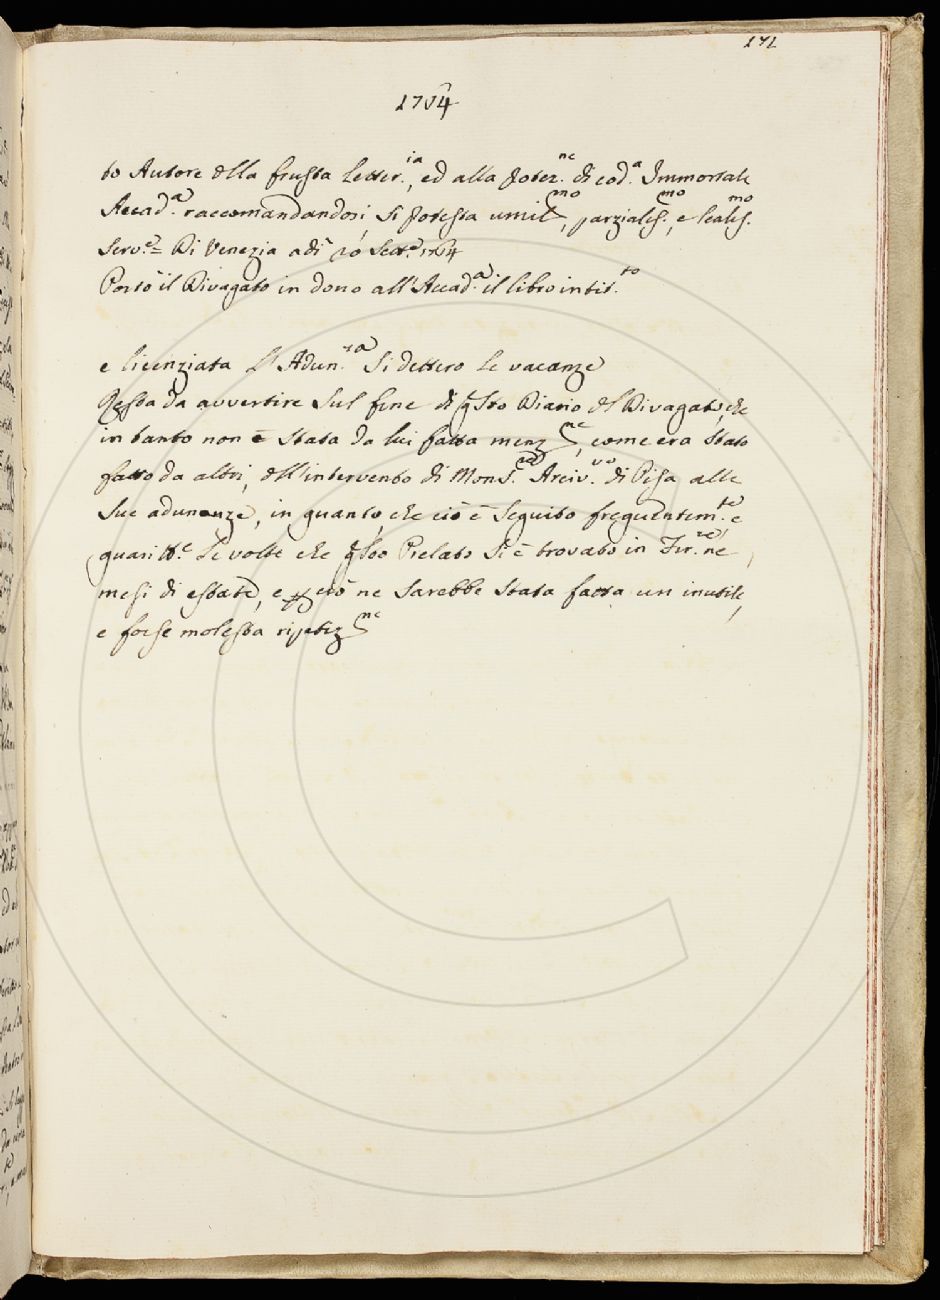 171
1764
to Autore della frusta Letter.ia, ed alla protez.ne di cod.a Immortale
Accad.a raccomandandosi, si protesta umil.mo, parzialis.mo, e lealis.mo
Serv.e = Di Venezia adì 20 Sett.e 1764
Portò il Divagato in dono all'Accad.a il libro intit.to
e licenziata l'Adun.za si dettero le vacanze
Resta da avvertire sul fine di qsto Diario del Divagato, che
in tanto non è stata da lui fatta menz.ne, come era stato
fatto da altri, dell'intervento di Mons.r Arciv.vo di Pisa alle
sue adunanze, in quanto, che ciò è seguito frequentem.te e
quasi tt.e le volte che qsto Prelato si è trovato in Fir.ze ne
mesi di estate, e p ciò ne sarebbe stata fatta un inutile,
e forse molesta ripetiz.ne